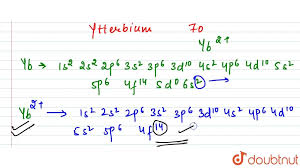 Ytterbium 70
Yb²⁺
Yb → 1s² 2s² 2p⁶ 3s² 3p⁶ 3d¹⁰ 4s² 4p⁶ 4d¹⁰ 5s²
5p⁶ 4f¹⁴ 5d⁰ 6s² →
Yb²⁺ → 1s² 2s² 2p⁶ 3s² 3p⁶ 3d¹⁰ 4s² 4p⁶ 4d¹⁰
5s² 5p⁶ 4f¹⁴
doubtnut